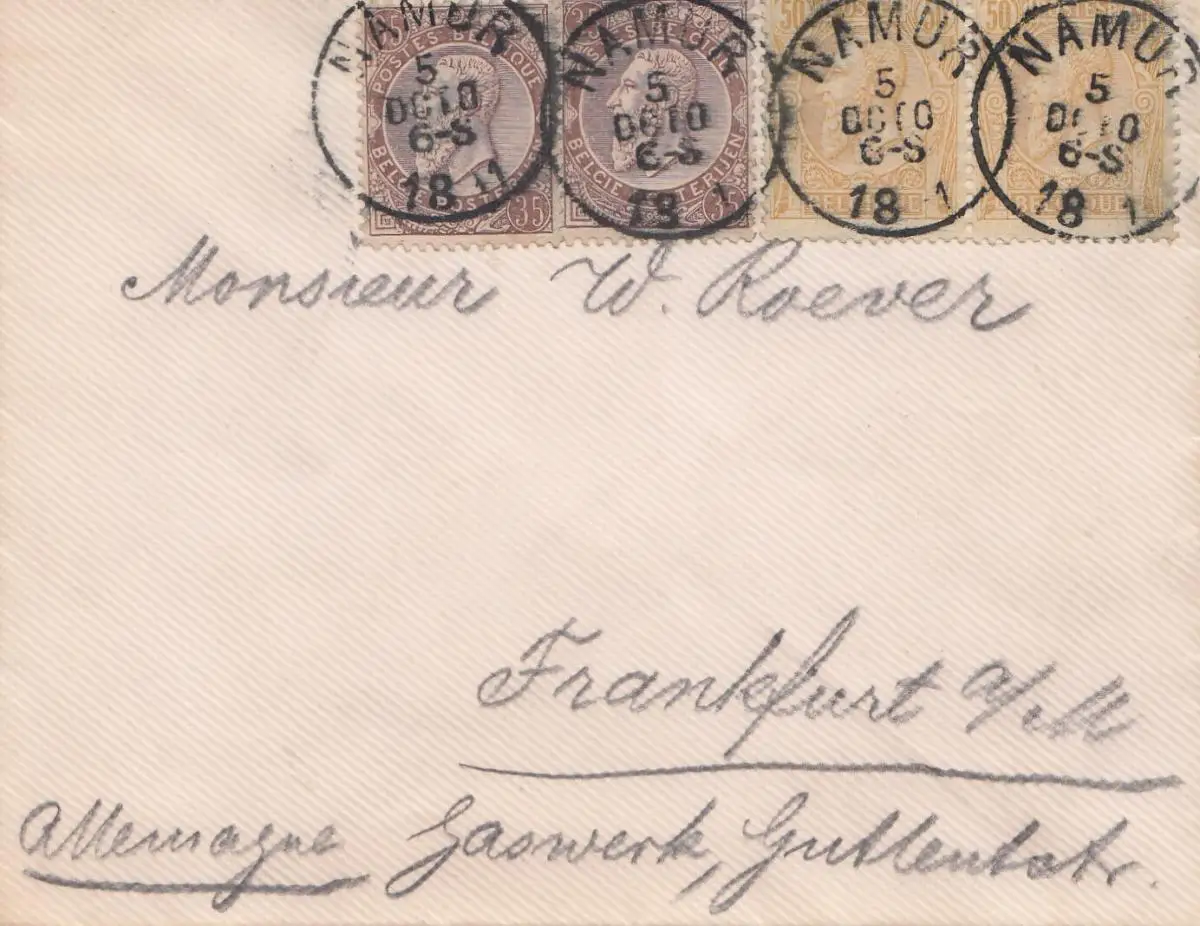 NAMUR NAMUR NAMUR NAMUR
5 5 5 5
OCTO OCTO OCTO OCTO
6-S 6-S 6-S 6-S
18 18 18 18
POSTES BELGIQUE
BELGIE POSTERIJEN
35
50 50
Monsieur W. Roever
Frankfurt a/M
Allemagne Gaswerk, Gutleutstr.